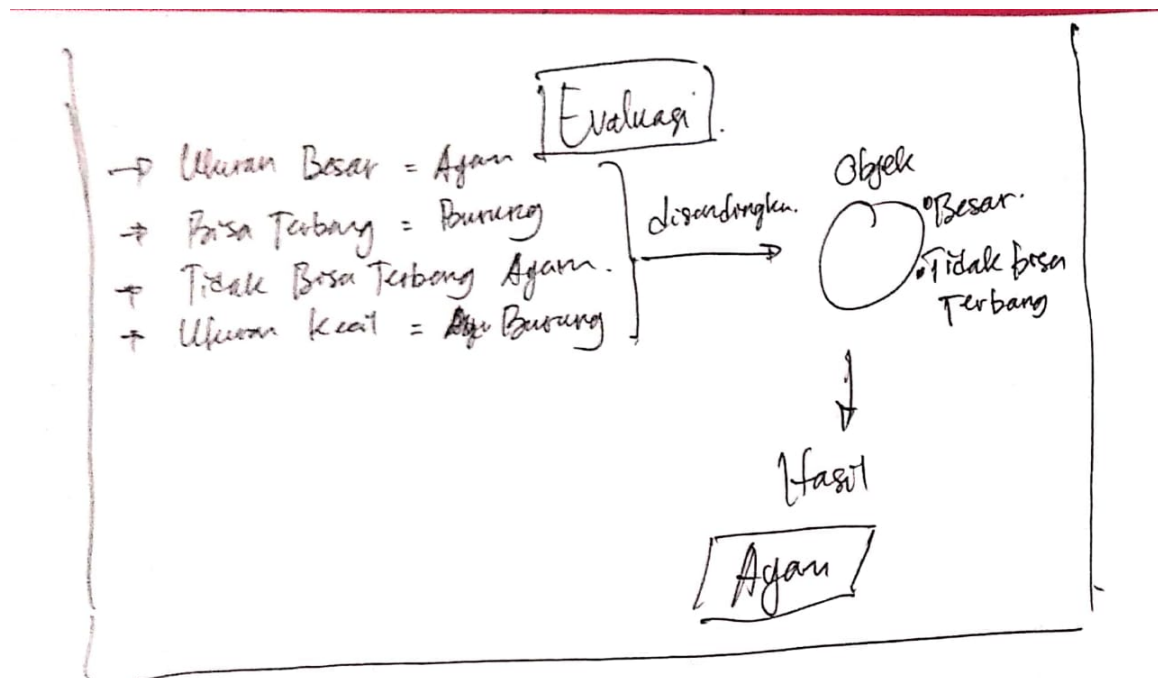 Evaluasi
→ Ukuran Besar = Ayam
→ Bisa Terbang = Burung
→ Tidak Bisa Terbang Ayam.
→ Ukuran Kecil = Burung
disandingkn.
Objek
• Besar.
• Tidak bisa
Terbang
Hasil
Ayam